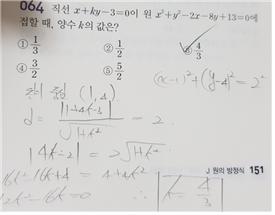 064 직선 x+ky-3=0이 원 x²+y²-2x-8y+13=0에
접할 때, 양수 k의 값은?
① 1/3 ② 1/2 ③ 4/3
④ 3/2 ⑤ 5/2
(x-1)²+(y-4)²=2²
중심 (1,4)
d = |1+4k-3| / √(1+k²) = 2
|4k-2| = 2√(1+k²)
16k²-16k+4 = 4+4k²
12k²-16k=0 ∴ k = 4/3
J 원의 방정식 151